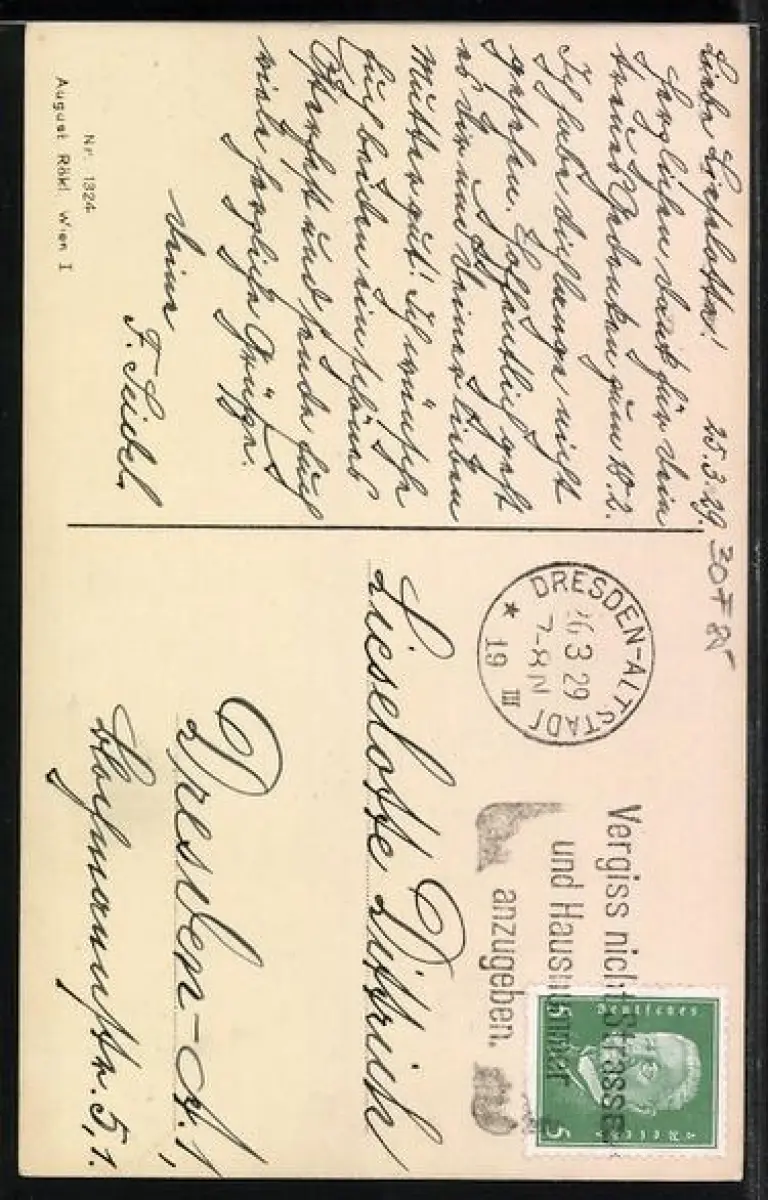 Liebe Lieselotte! 25.3.29.
Herzlichen Dank für Dein
treues Gedenken zum 10.2.
Ich habe Dich lange nicht
gesehen. Hoffentlich geht
es Dir und Deiner lieben
Mutter gut! Ich wünsche
Euch beiden ein schönes
Osterfest und sende Euch
viele herzliche Grüße.
Deine
F. Seidel.
Nr. 1324
August Rökl, Wien I
DRESDEN-ALTSTADT
26 3 29
7-8 N
* 19 III
Vergiss nicht Strasse
und Hausnummer
anzugeben.
Deutsches
Reich
5 5
Lieselotte Dittrich
Dresden-A. 1,
5, I.